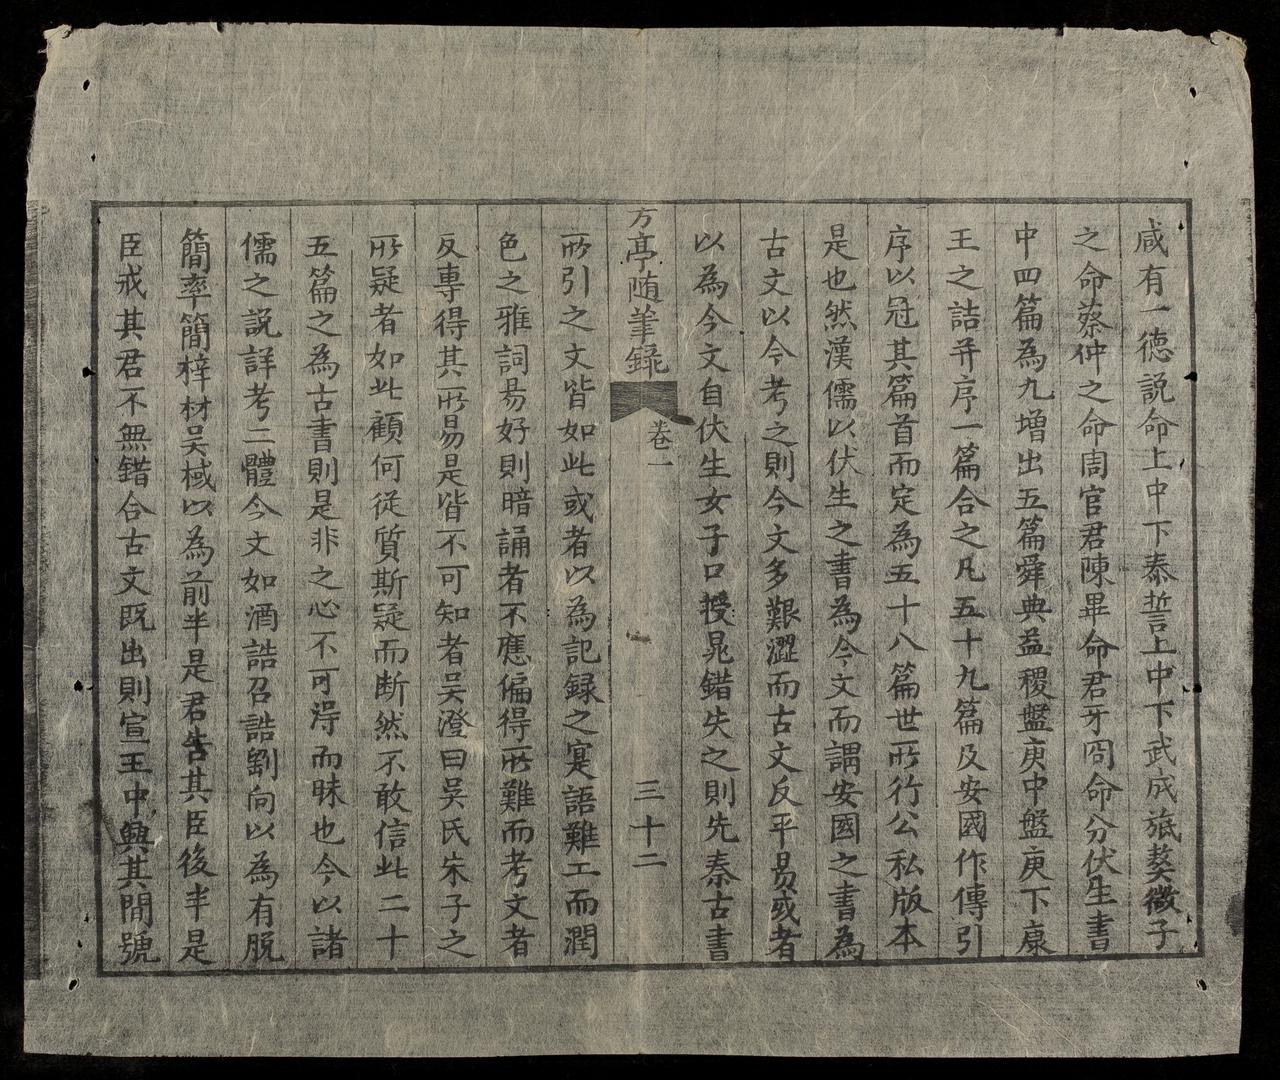 咸有一徳説命上中下泰誓上中下武成旅獒微子
之命蔡仲之命周官君陳畢命君牙冏命分伏生書
中四篇為九增出五篇舜典益稷盤庚中盤庚下康
王之誥并序一篇合之凡五十九篇及安國作傳引
序以冠其篇首而定為五十八篇世所行公私版本
是也然漢儒以伏生之書為今文而謂安國之書為
古文以今考之則今文多艱澀而古文反平易或者
以為今文自伏生女子口授晁錯失之則先秦古書
方亭随筆録
卷一
三十二
所引之文皆如此或者以為記録之寔語難工而潤
色之雅詞易好則暗誦者不應偏得所難而考文者
反專得其所易是皆不可知者吳澄曰吳氏朱子之
所疑者如此顧何從質斯疑而断然不敢信此二十
五篇之為古書則是非之心不可淂而昧也今以諸
儒之説詳考二體今文如酒誥召誥劉向以為有脱
簡率簡梓材吴棫以為前半是君告其臣後半是
臣戒其君不無錯合古文既出則宣王中興其間號